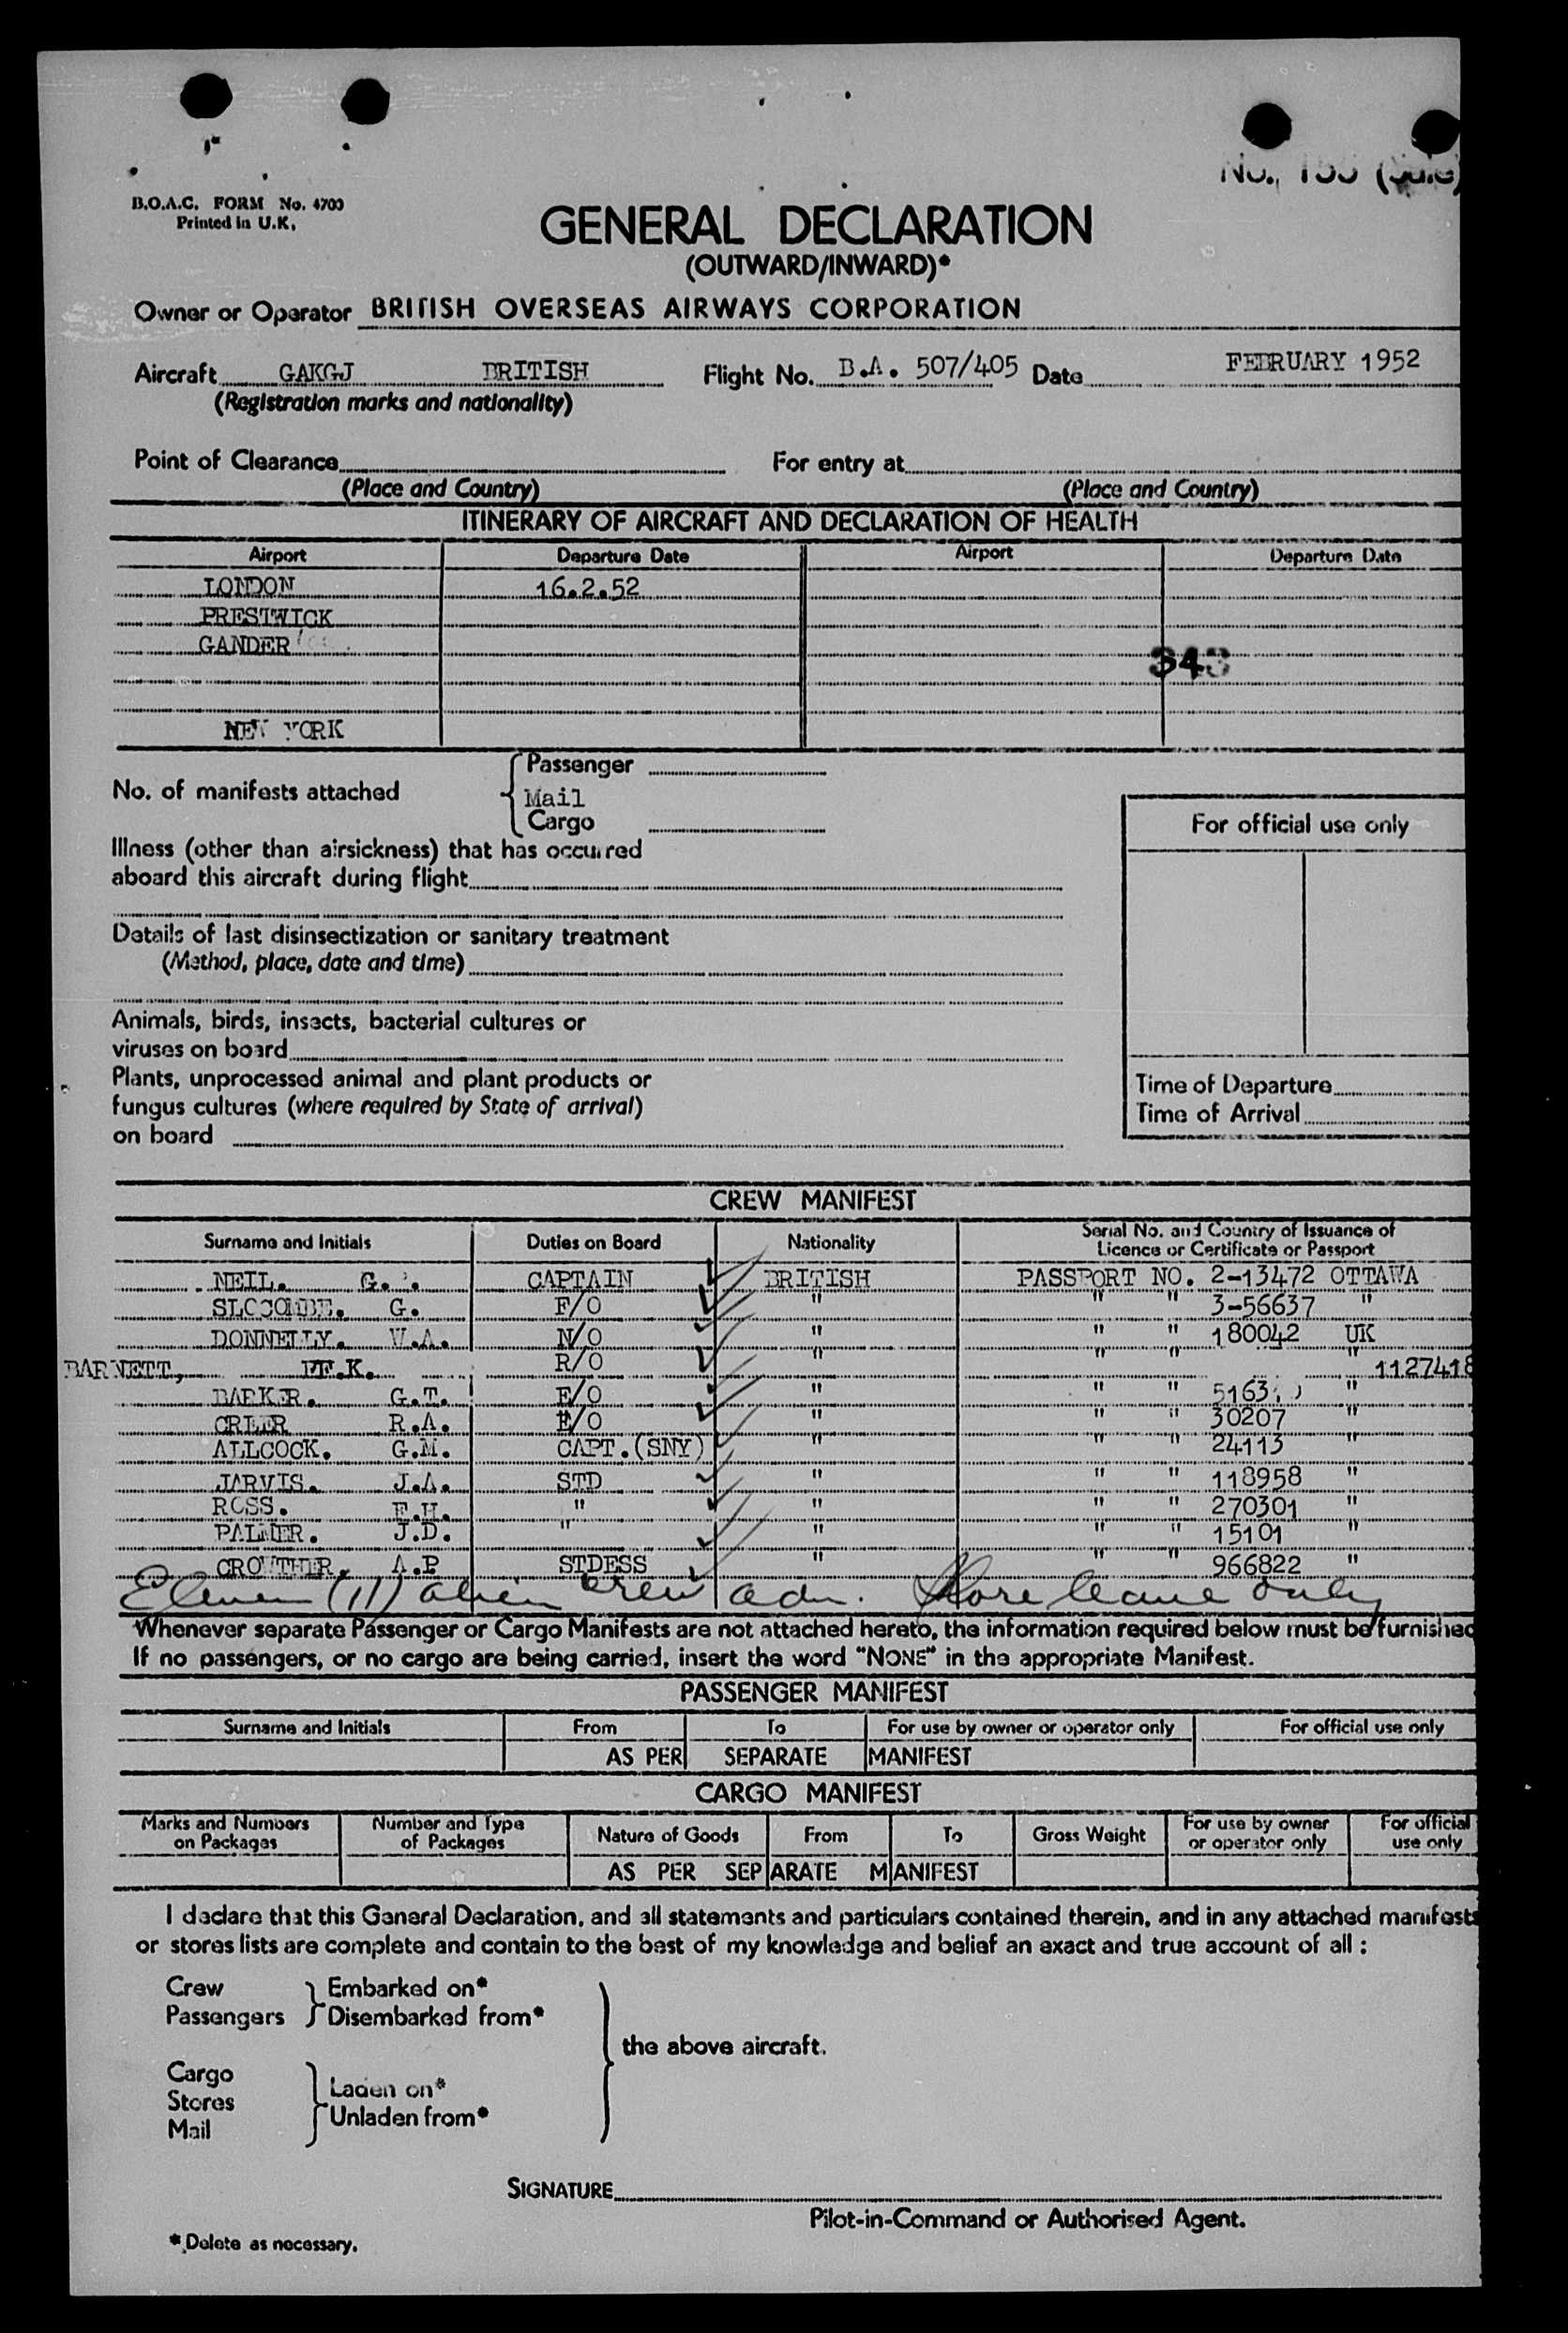 B.O.A.C. FORM No. 4700
Printed in U.K.
GENERAL DECLARATION
(OUTWARD/INWARD)*
Owner or Operator BRITISH OVERSEAS AIRWAYS CORPORATION
Aircraft GAKGJ BRITISH Flight No. B.A. 507/405 Date FEBRUARY 1952
(Registration marks and nationality)
Point of Clearance For entry at
(Place and Country) (Place and Country)
ITINERARY OF AIRCRAFT AND DECLARATION OF HEALTH
Airport Departure Date Airport Departure Date
LONDON 16.2.52
PRESTWICK
GANDER
343
NEW YORK
Passenger
No. of manifests attached
Mail
Cargo
For official use only
Illness (other than airsickness) that has occurred
aboard this aircraft during flight
Details of last disinsectization or sanitary treatment
(Method, place, date and time)
Animals, birds, insects, bacterial cultures or
viruses on board
Plants, unprocessed animal and plant products or
fungus cultures (where required by State of arrival)
on board
Time of Departure
Time of Arrival
CREW MANIFEST
Surname and Initials Duties on Board Nationality Serial No. and Country of Issuance of Licence or Certificate or Passport
NEIL. G. CAPTAIN BRITISH PASSPORT NO. 2-13472 OTTAWA
SLOCOMBE. G. F/O " " " 3-56637 "
DONNELLY. W.A. N/O " " " 180042 UK
BARNETT, R/O " " " " 1127418
BARKER. G.T. E/O " " " "
CRLER R.A. E/O " " " 30207 "
ALLCOCK. G.M. CAPT.(SNY) " " " 24113 "
JARVIS. J.A. STD " " " 118958 "
ROSS. F.H. " " " " 270301 "
PALMER. J.D. " " " " 15101 "
CROWTHER. A.P STDESS " " " 966822 "
Eleven (11) alien crew adm. Shore leave only
Whenever separate Passenger or Cargo Manifests are not attached hereto, the information required below must be furnished
If no passengers, or no cargo are being carried, insert the word "NONE" in the appropriate Manifest.
PASSENGER MANIFEST
Surname and Initials From To For use by owner or operator only For official use only
AS PER SEPARATE MANIFEST
CARGO MANIFEST
Marks and Numbers on Packages Number and Type of Packages Nature of Goods From To Gross Weight For use by owner or operator only For official use only
AS PER SEPARATE MANIFEST
I declare that this General Declaration, and all statements and particulars contained therein, and in any attached manifests
or stores lists are complete and contain to the best of my knowledge and belief an exact and true account of all :
Crew Embarked on*
Passengers Disembarked from*
the above aircraft.
Cargo
Stores Laden on*
Mail Unladen from*
SIGNATURE
Pilot-in-Command or Authorised Agent.
* Delete as necessary.